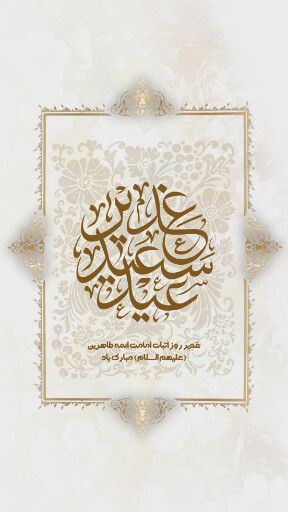 عید
سعید
غدیر
غدیر روز اثبات امامت ائمه طاهرین
(علیهم السلام) مبارک باد